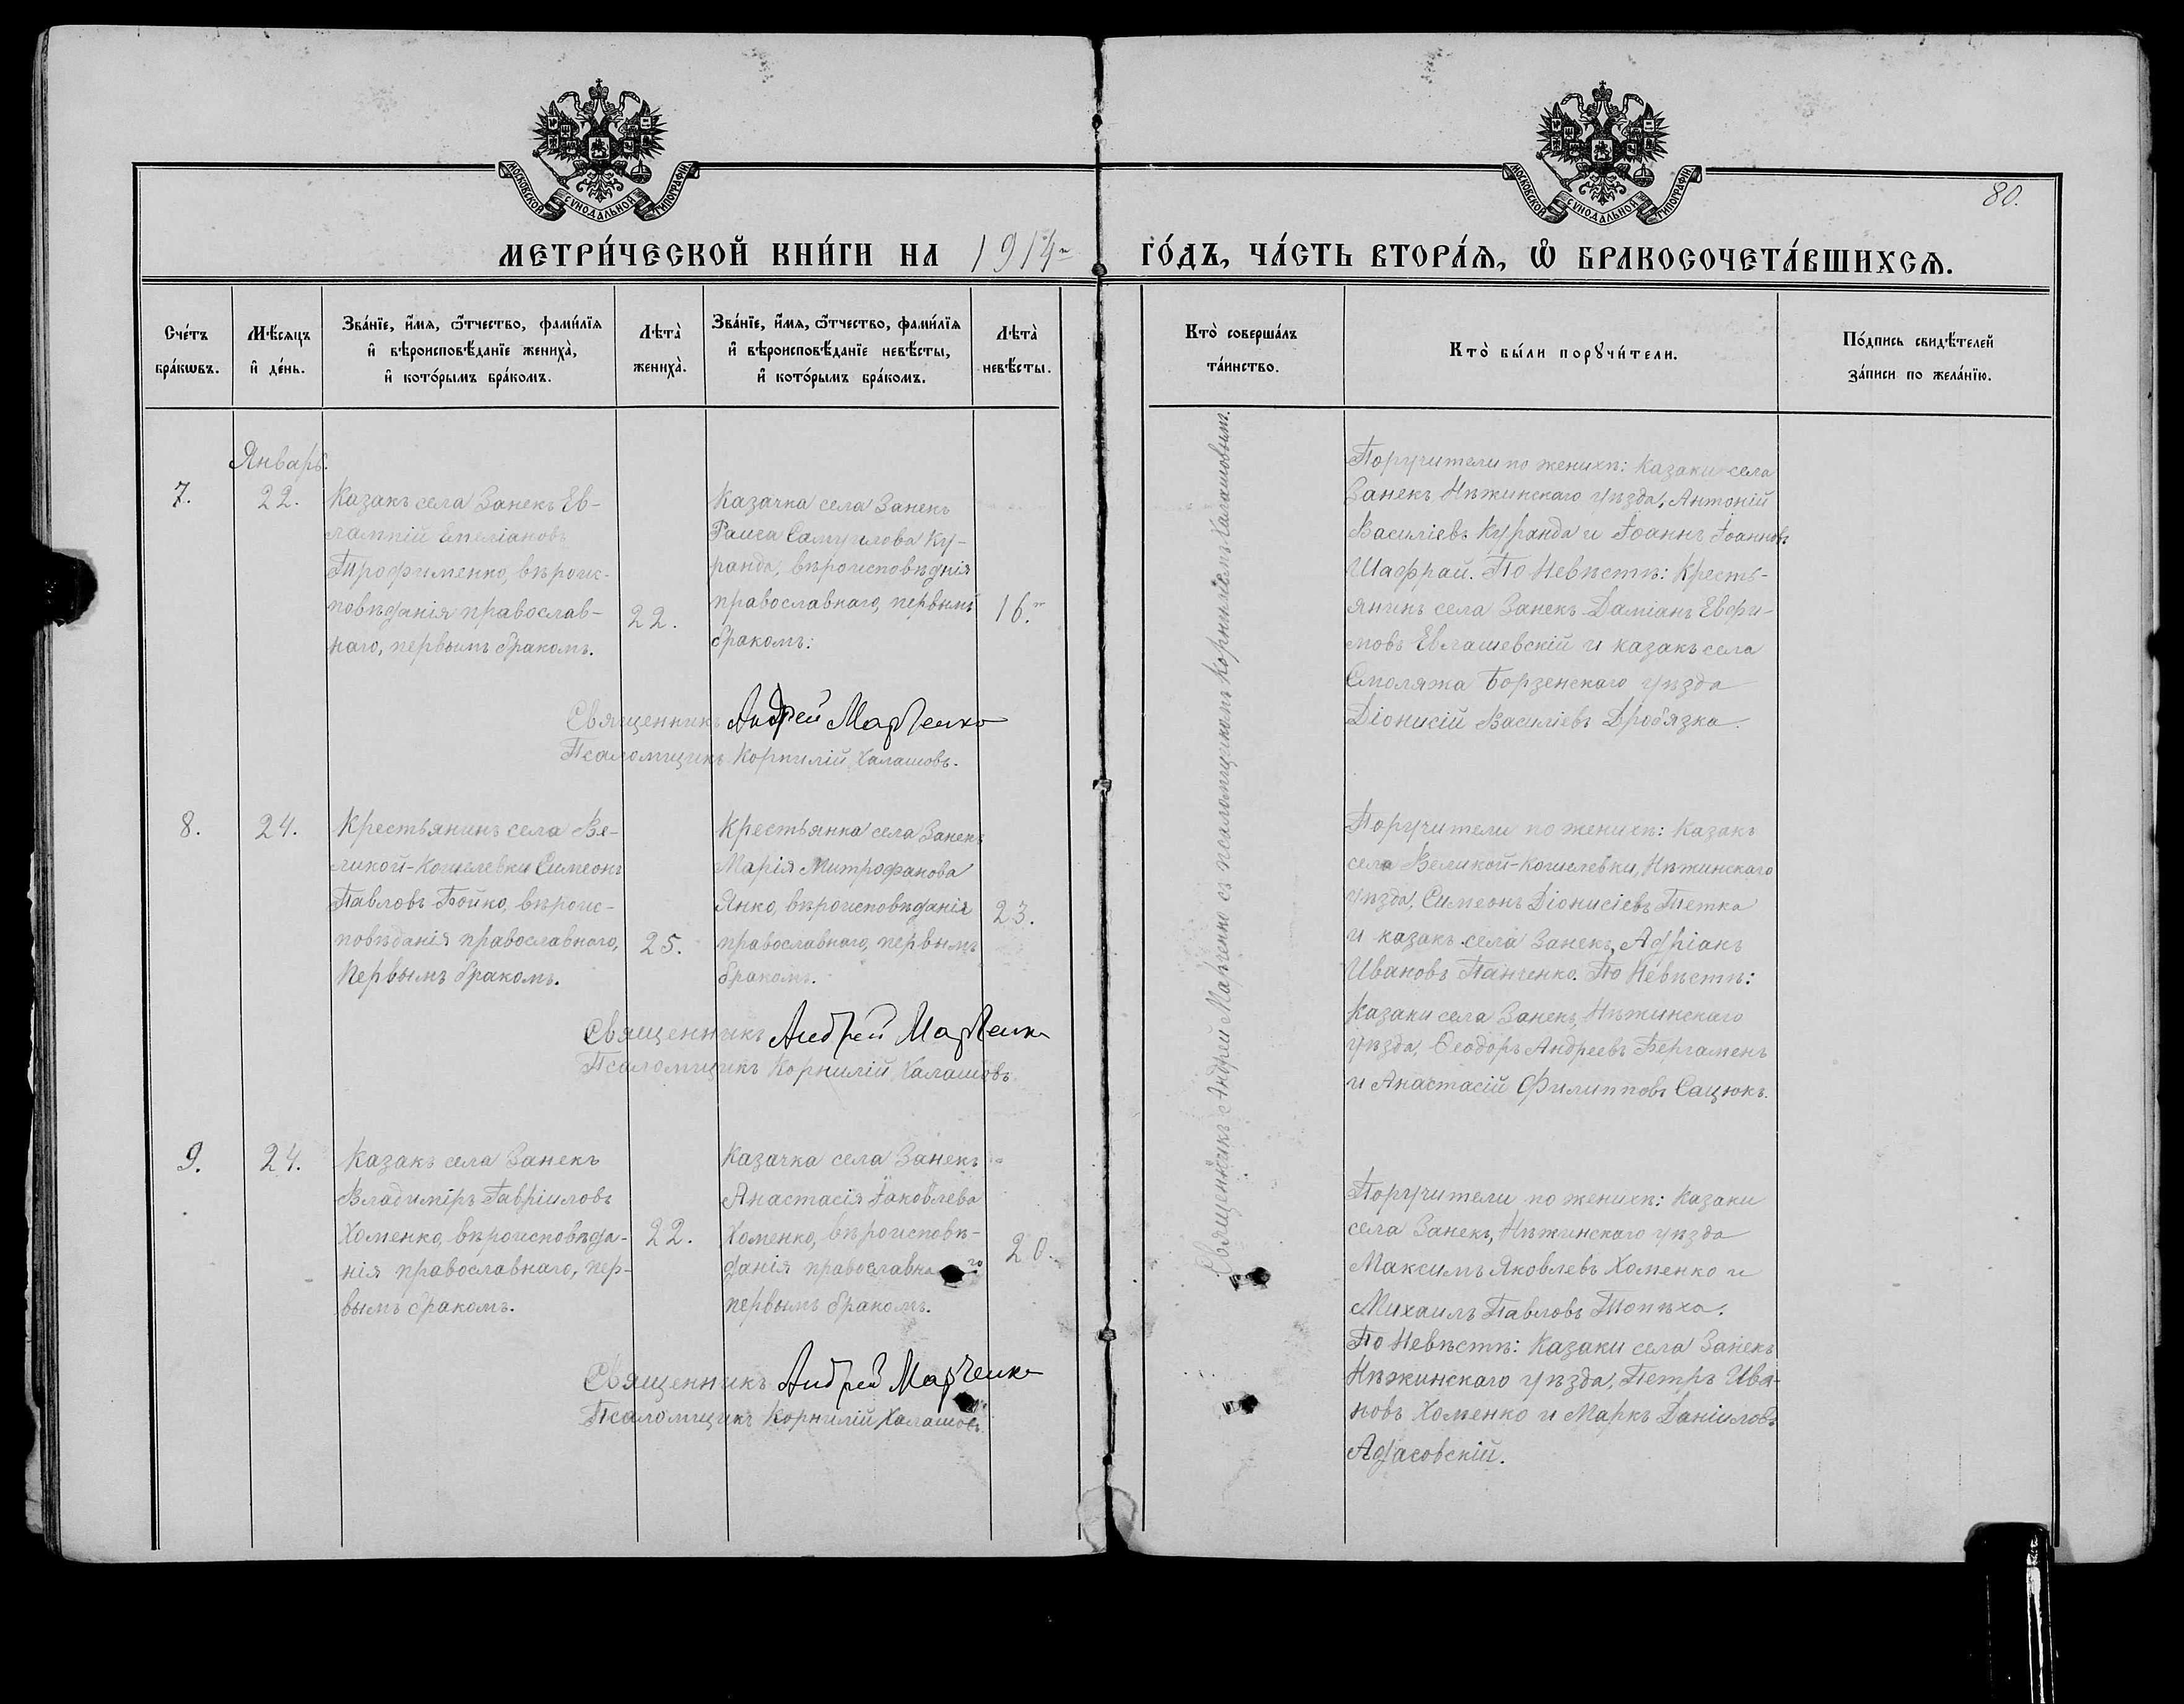 МОСКОВСКОЙ СѴНОДАЛЬНОЙ ТИПОГРАФІИ
МОСКОВСКОЙ СѴНОДАЛЬНОЙ ТИПОГРАФІИ
80.
МЕТРИ́ЧЕСКОЙ КНИ́ГИ НА 1914 ГО́ДЪ, ЧА́СТЬ ВТОРА́Ѧ, Ѽ БРАКОСОЧЕТА́ВШИХСѦ.
Сче́тъ
бра́кѡвъ.
Мѣ́сѧцъ
и҆ де́нь.
Зва́нїе, и҆́мѧ, ѻ҆́тчество, фами́лїѧ
и҆ вѣроисповѣ́данїе жениха̀,
и҆ кото́рымъ бра́комъ.
Лѣта̀
жениха̀.
Зва́нїе, и҆́мѧ, ѻ҆́тчество, фами́лїѧ
и҆ вѣроисповѣ́данїе невѣ́сты,
и҆ кото́рымъ бра́комъ.
Лѣта̀
невѣ́сты.
Кто̀ соверша́лъ
та́инство.
Кто̀ бы́ли порꙋчи́тели.
По́дпись свидѣ́телей
за́писи по жела́нїю.
Январь.
7.
22.
Казакъ села Занекъ Ев-
лампій Емеліановъ
Трофименко, вѣроис-
повѣданія православ-
наго, первымъ бракомъ.
22.
Казачка села Занекъ
Раиса Самуилова Ку-
ранда, вѣроисповѣднія
православнаго, первымъ
бракомъ:
16.
Священникъ Андрей Марченко
Псаломщикъ Корнилій Халашовъ.
Поручители по женихѣ: Казаки села
Занекъ Нѣжинскаго уѣзда, Антоній
Василіевъ Куранда и Іоаннъ Іоанновъ
Шафрай. По Невѣстѣ: Кресть-
янинъ села Занекъ Даміанъ Евфи-
мовъ Евлашевскій и казакъ села
Смоляжа Борзенскаго уѣзда
Діонисій Василіевъ Дробязка.
8.
24.
Крестьянинъ села Ве-
ликой-Кошелевки Симеонъ
Павловъ Бойко, вѣроис-
повѣданія православнаго,
Первымъ бракомъ.
25.
Крестьянка села Занекъ
Марія Митрофанова
Янко, вѣроисповѣданія
православнаго, первымъ
бракомъ.
23.
Священникъ Андрей Марченко
Псаломщикъ Корнилій Халашовъ.
Поручители по женихѣ: Казакъ
села Великой-Кошелевки, Нѣжинскаго
уѣзда, Симеонъ Діонисіевъ Тетка
и казакъ села Занекъ, Адріанъ
Ивановъ Панченко. По Невѣстѣ:
Казаки села Занекъ, Нѣжинскаго
уѣзда, Ѳеодоръ Андреевъ Бергаменъ
и Анастасій Филипповъ Сацюкъ.
9.
24.
Казакъ села Занекъ
Владиміръ Гавріиловъ
Хоменко, вѣроисповѣда-
нія православнаго, пер-
вымъ бракомъ.
22.
Казачка села Занекъ
Анастасія Іаковлева
Хоменко, вѣроисповѣ-
данія православнаго
первымъ бракомъ.
20.
Священникъ Андрей Марченко
Псаломщикъ Корнилій Халашовъ.
Поручители по женихѣ: Казаки
села Занекъ, Нѣжинскаго уѣзда
Максимъ Яковлевъ Хоменко и
Михаилъ Павловъ Топѣха.
По Невѣстѣ: Казаки села Занекъ
Нѣжинскаго уѣзда, Петръ Ива-
новъ Хоменко и Маркъ Даніиловъ
Адасовскій.
Священникъ Андрей Марченко съ псаломщикомъ Корниліемъ Халашовымъ.